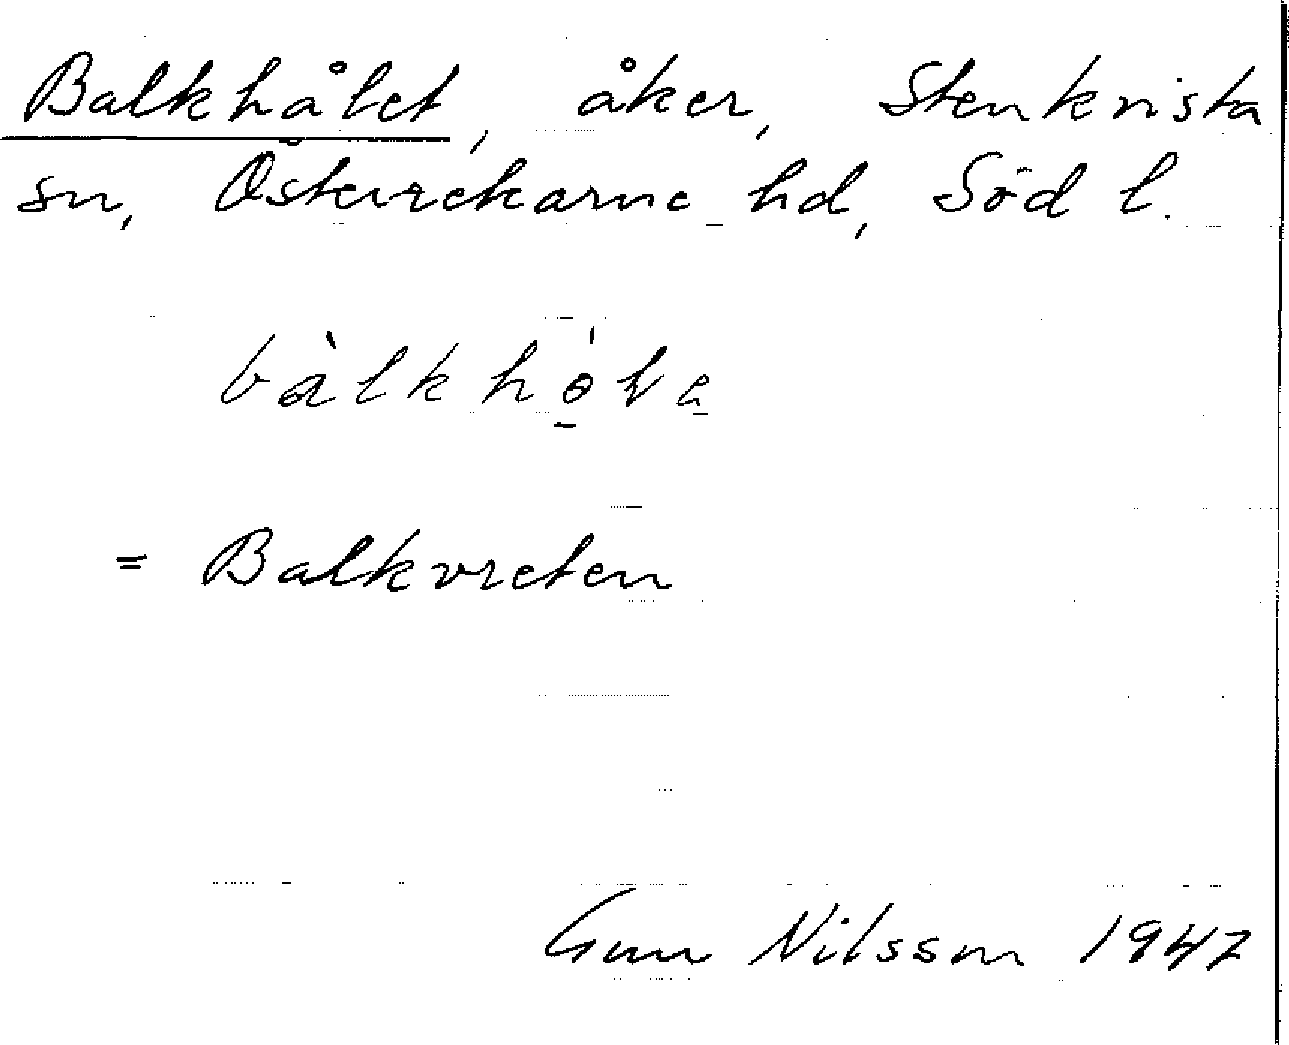 Balkhålet, åker, Stenkvista
sn, Österrekarne hd, Söd l.
bàlkhò̱la
= Balkvreten
Gun Nilsson 1947